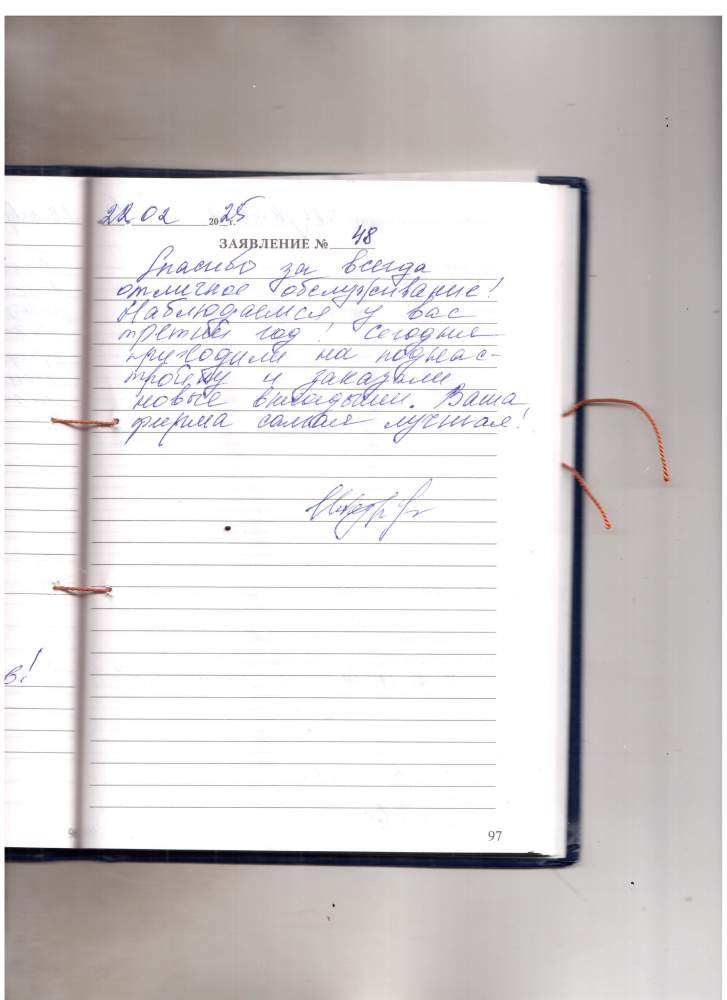 22.02 2025 г.
ЗАЯВЛЕНИЕ № 48
Спасибо за всегда
отличное обслуживание!
Наблюдаемся у вас
третий год! Сегодня
приходили на поднас-
тройку и заказали
новые вкладыши. Ваша
фирма самая лучшая!
в!
97